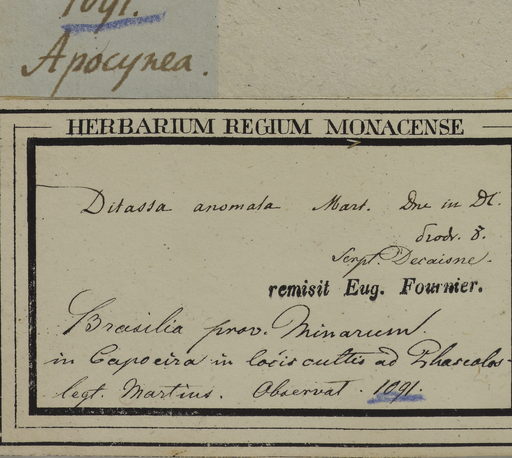 1091.
Apocynea.
HERBARIUM REGIUM MONACENSE
Ditassa anomala Mart. Dne in DC.
Prodr. 8.
Script. Decaisne.
remisit Eug. Fournier.
Brasilia prov. Minarum.
in Capoeira in locis cultis ad Phaseolos
legt. Martius. Observat. 1091.